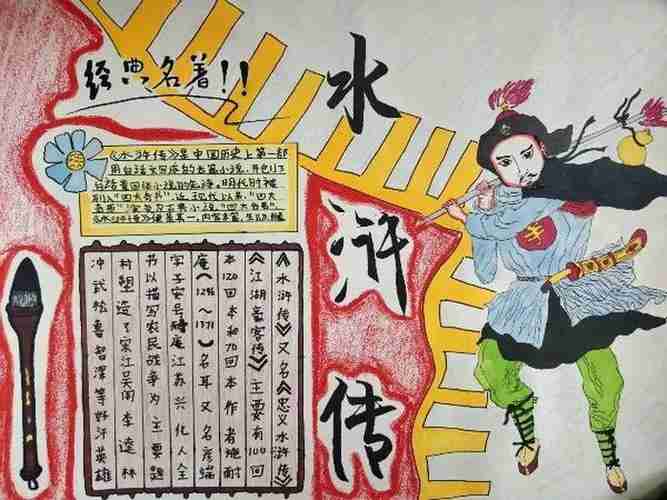 经典名著!!
水浒传
《水浒传》是中国历史上第一部
用白话文写成的长篇小说,开创了
白话章回体小说的先河,明代时被
列入"四大奇书"
《水浒传》又名《忠义水浒传》
《江湖豪客传》主要有100回
本120回本和70回本作者施耐
庵(1296~1371)名耳又名彦端
字子安号 庵江苏兴化人全
书以描写农民战争为主要题
材塑造了宋江吴用李逵林
冲武松鲁智深等好汉英雄
李